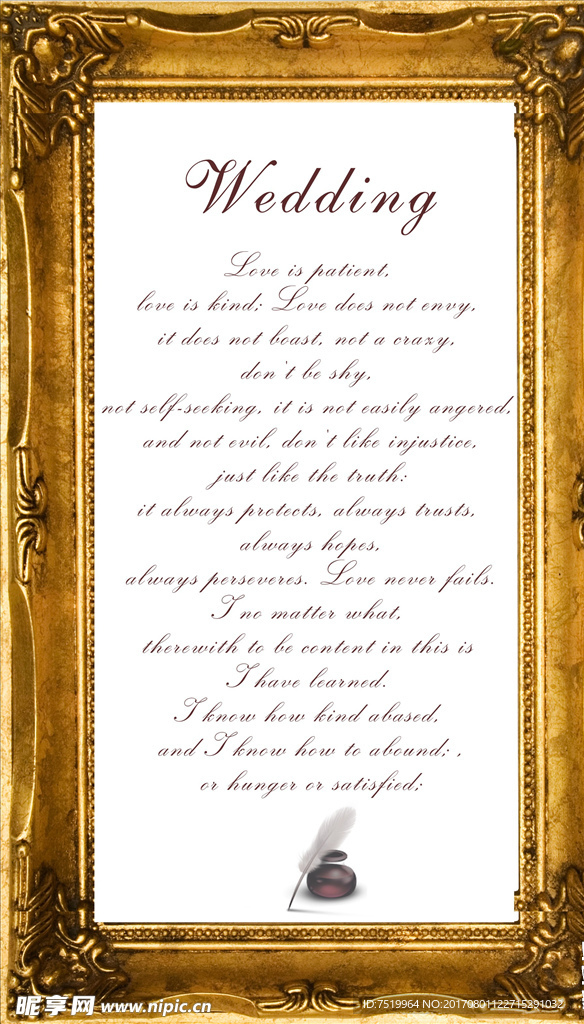 Wedding
Love is patient,
love is kind; Love does not envy,
it does not boast, not a crazy,
don't be shy,
not self-seeking, it is not easily angered,
and not evil, don't like injustice,
just like the truth:
it always protects, always trusts,
always hopes,
always perseveres. Love never fails.
I no matter what,
therewith to be content in this is
I have learned.
I know how kind abased,
and I know how to abound; ,
or hunger or satisfied;
昵享网 www.nipic.cn
ID:7519964 NO:20170801122715391032